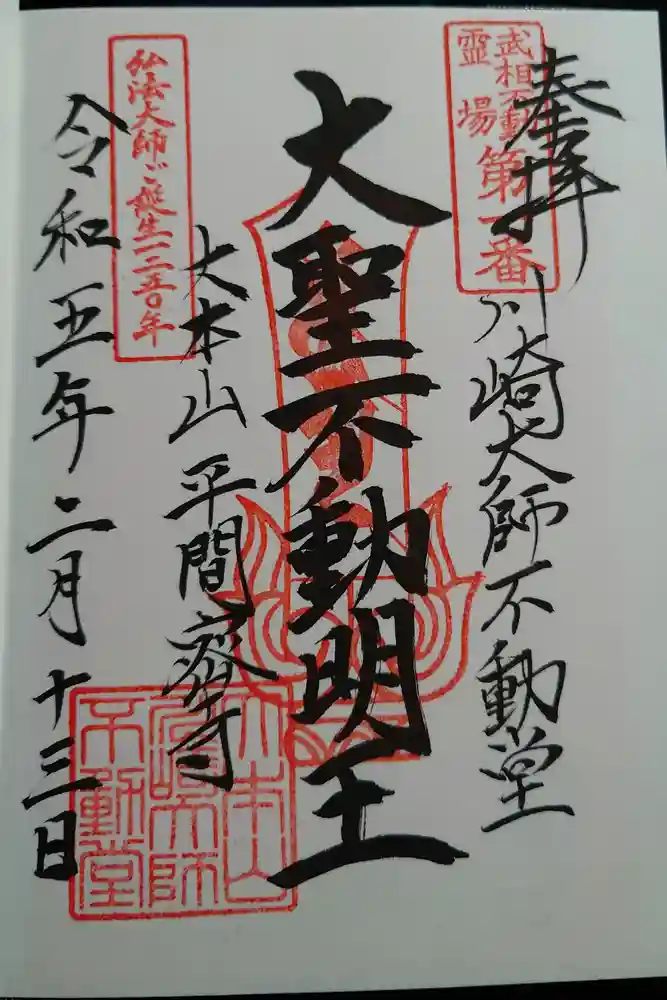 奉拝
武相不動
靈場
第一番
川崎大師不動堂
大聖不動明王
大本山 平間寺
弘法大師ご誕生一二五〇年
令和五年二月十三日
大本山
川崎大師
不動堂